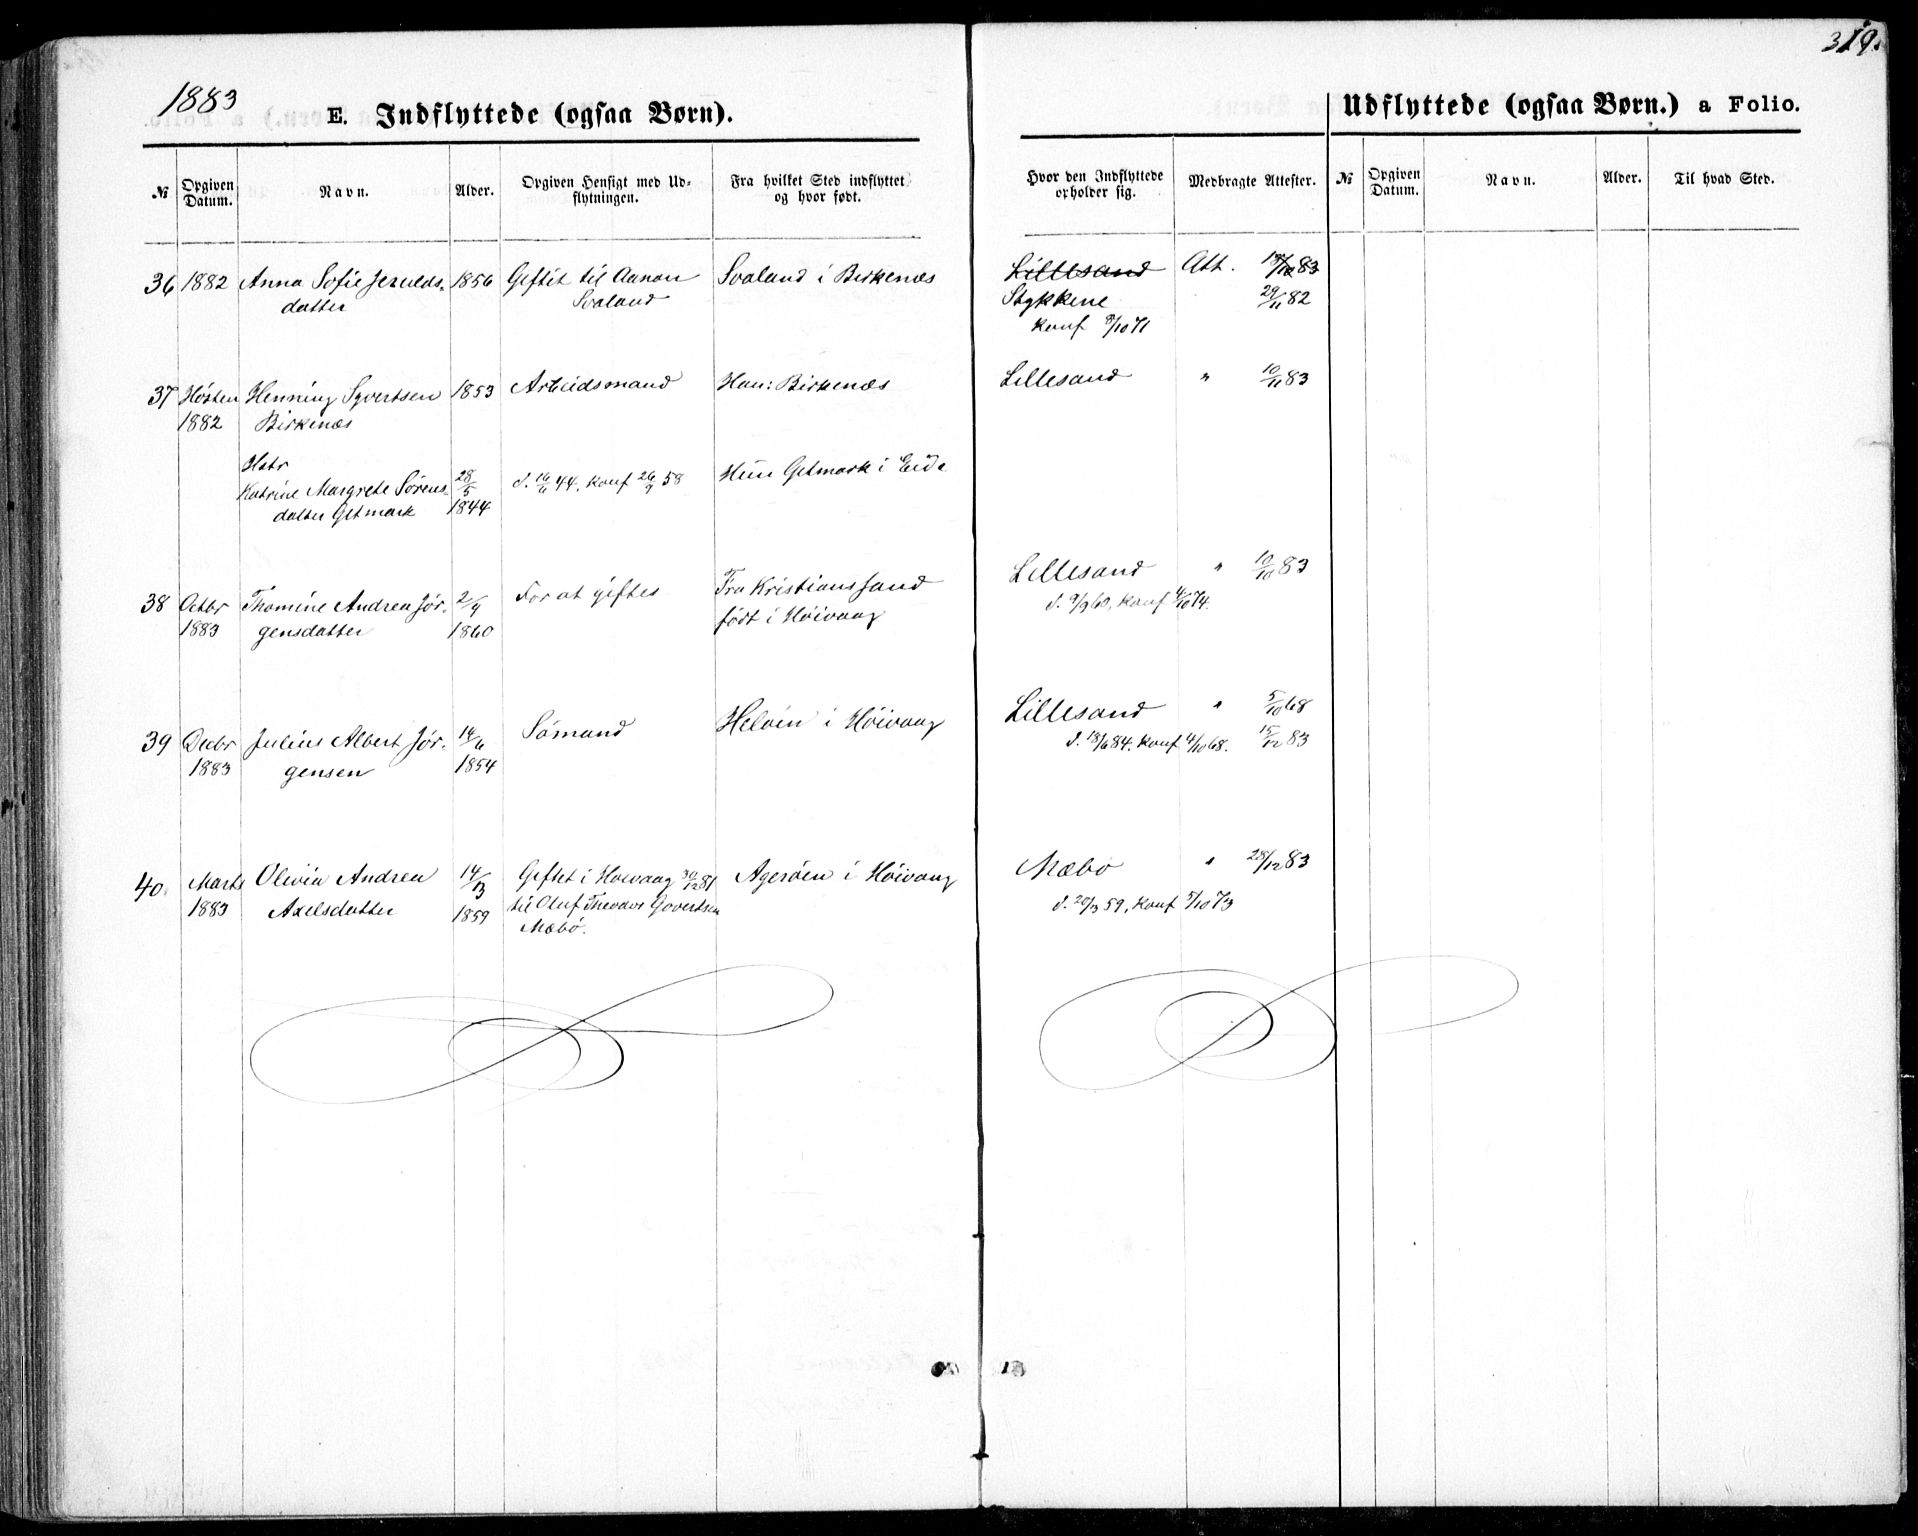 1883
319.
E. Indflyttede (ogsaa Børn).
Udflyttede (ogsaa Børn.) a Folio.
№ Opgiven Datum. Navn. Alder. Opgiven Hensigt med Udflytningen. Fra hvilket Sted indflyttet og hvor født. Hvor den Indflyttede opholder sig. Medbragte Attester. № Opgiven Datum. Navn. Alder. Til hvad Sted.
36 1882 Anna Sofie 1856 Giftet til Aanon Svaland i Birkenæs Lillesand Att. 83
datter Svaland Stykkene 29/11 82
konf 8/10 71
37 Høsten Henning Syvertsen 1853 Arbeidsmand Han: Birkenæs Lillesand " 10/11 83
1882 Birkenæs
Hstr
Katrine Margrete Sørens- 28/5 d. 16/6 44, konf 26/9 58 Hun Getmark i Eide
datter Getmark 1844
38 Octbr Thomine Andrea Jør- 2/9 For at giftes Fra Kristianssand Lillesand " 10/10 83
1883 gensdatter 1860 født i Høivaag d. 9/9 60, konf 4/10 74.
39 Decbr Julius Albert Jør- 14/6 Sømand Heløen i Høivaag Lillesand " 5/10 68
1883 gensen 1854 d. 18/6 84, konf 4/10 68. 15/12 83
40. Marts Olivia Andrea 14/13 Giftet i Høivaag 30/12 81 Agerøen i Høivaag Mæbø " 28/12 83
1883 Axelsdatter 1859 til Oluf Theodor Govertsen d. 20/3 59, konf 5/10 73
Mæbø.